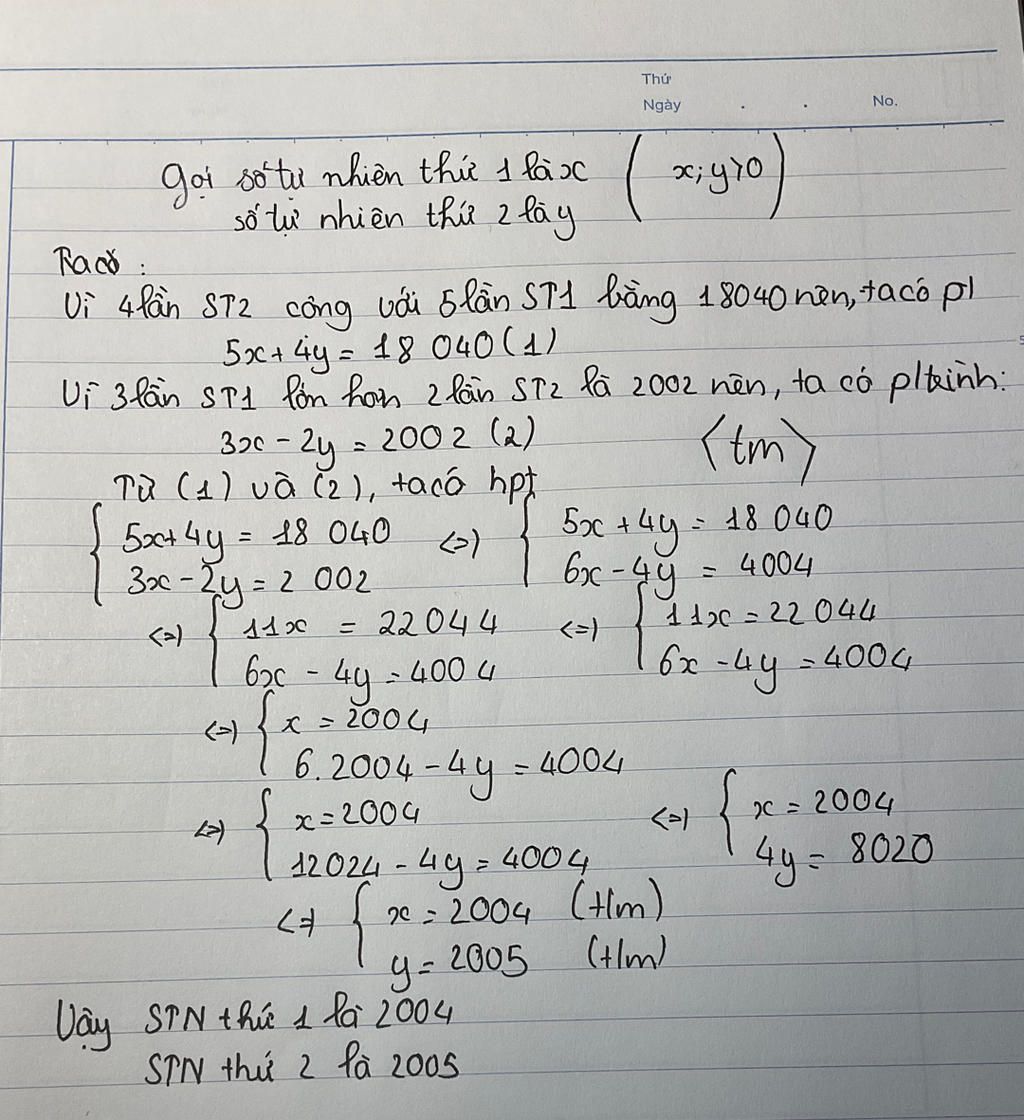 Thứ
Ngày . . No.
Gọi số tự nhiên thứ 1 là x ( x; y>0 )
số tự nhiên thứ 2 là y
Ta có :
Vì 4 lần ST2 cộng với 5 lần ST1 bằng 18040 nên, ta có pt
5x + 4y = 18 040 (1)
Vì 3 lần ST1 lớn hơn 2 lần ST2 là 2002 nên, ta có pttrình:
3x - 2y = 2002 (2) <tm>
Từ (1) và (2), ta có hpt
{ 5x + 4y = 18 040 <=> { 5x + 4y = 18 040
3x - 2y = 2 002 6x - 4y = 4004
<=> { 11x = 22044 <=> { 11x = 22 044
6x - 4y = 4004 6x - 4y = 4004
<=> { x = 2004
6. 2004 - 4y = 4004
<=> { x = 2004 <=> { x = 2004
12024 - 4y = 4004 4y = 8020
<=> { x = 2004 (t/m)
y = 2005 (t/m)
Vậy STN thứ 1 là 2004
STN thứ 2 là 2005